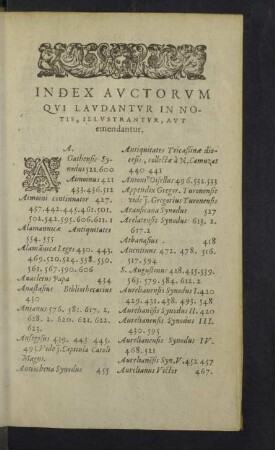 INDEX AVCTORVM
QVI LAVDANTVR IN NO-
TIS, ILLVSTRANTVR, AVT
emendantur.
A.
AGathensis Sy-
nodus 521.600
Aimoinus 421
433.436.512
Aimoini continuator 427.
457.442.445.461.501.
502.542.595.606.621.1
Alamannicæ Antiquitates
554.555
Alamannicæ Leges 430.443.
469.520.524.558.550.
563.567.590.606
Anacletus Papa 434
Anastasius Bibliothecarius
430
Anianus 576.581.617.2.
628.1.620.621.622.
623.
Ansegisus 439.443.445.
495. Vide J. Capitula Caroli
Magni.
Antiochena Synodus 455
Antiquitates Tricassinæ dio-
cesis, collectæ à N. Camuzat
440 441
Antoni' Oisellus 496.531.533
Appendix Greger. Turonensis
vide J. Gregorius Turonensis
Arausicana Synodus 527
Arelatensis Synodus 613.2.
617.2
Athanasius 418
Auentinus 472.478.516.
517.594
S. Augustinus 428.435.539.
563.579.584.612.2
Aurelianensis Synodus I.420
429.431.438.495.548
Aurelianensis Synodus II.
420
Aurelianensis Synodus III.
430.595
Aurelianensis Synodus IV.
468.521
Aurelianensis Syn.V.452.457
Aurelianus Victor 467.